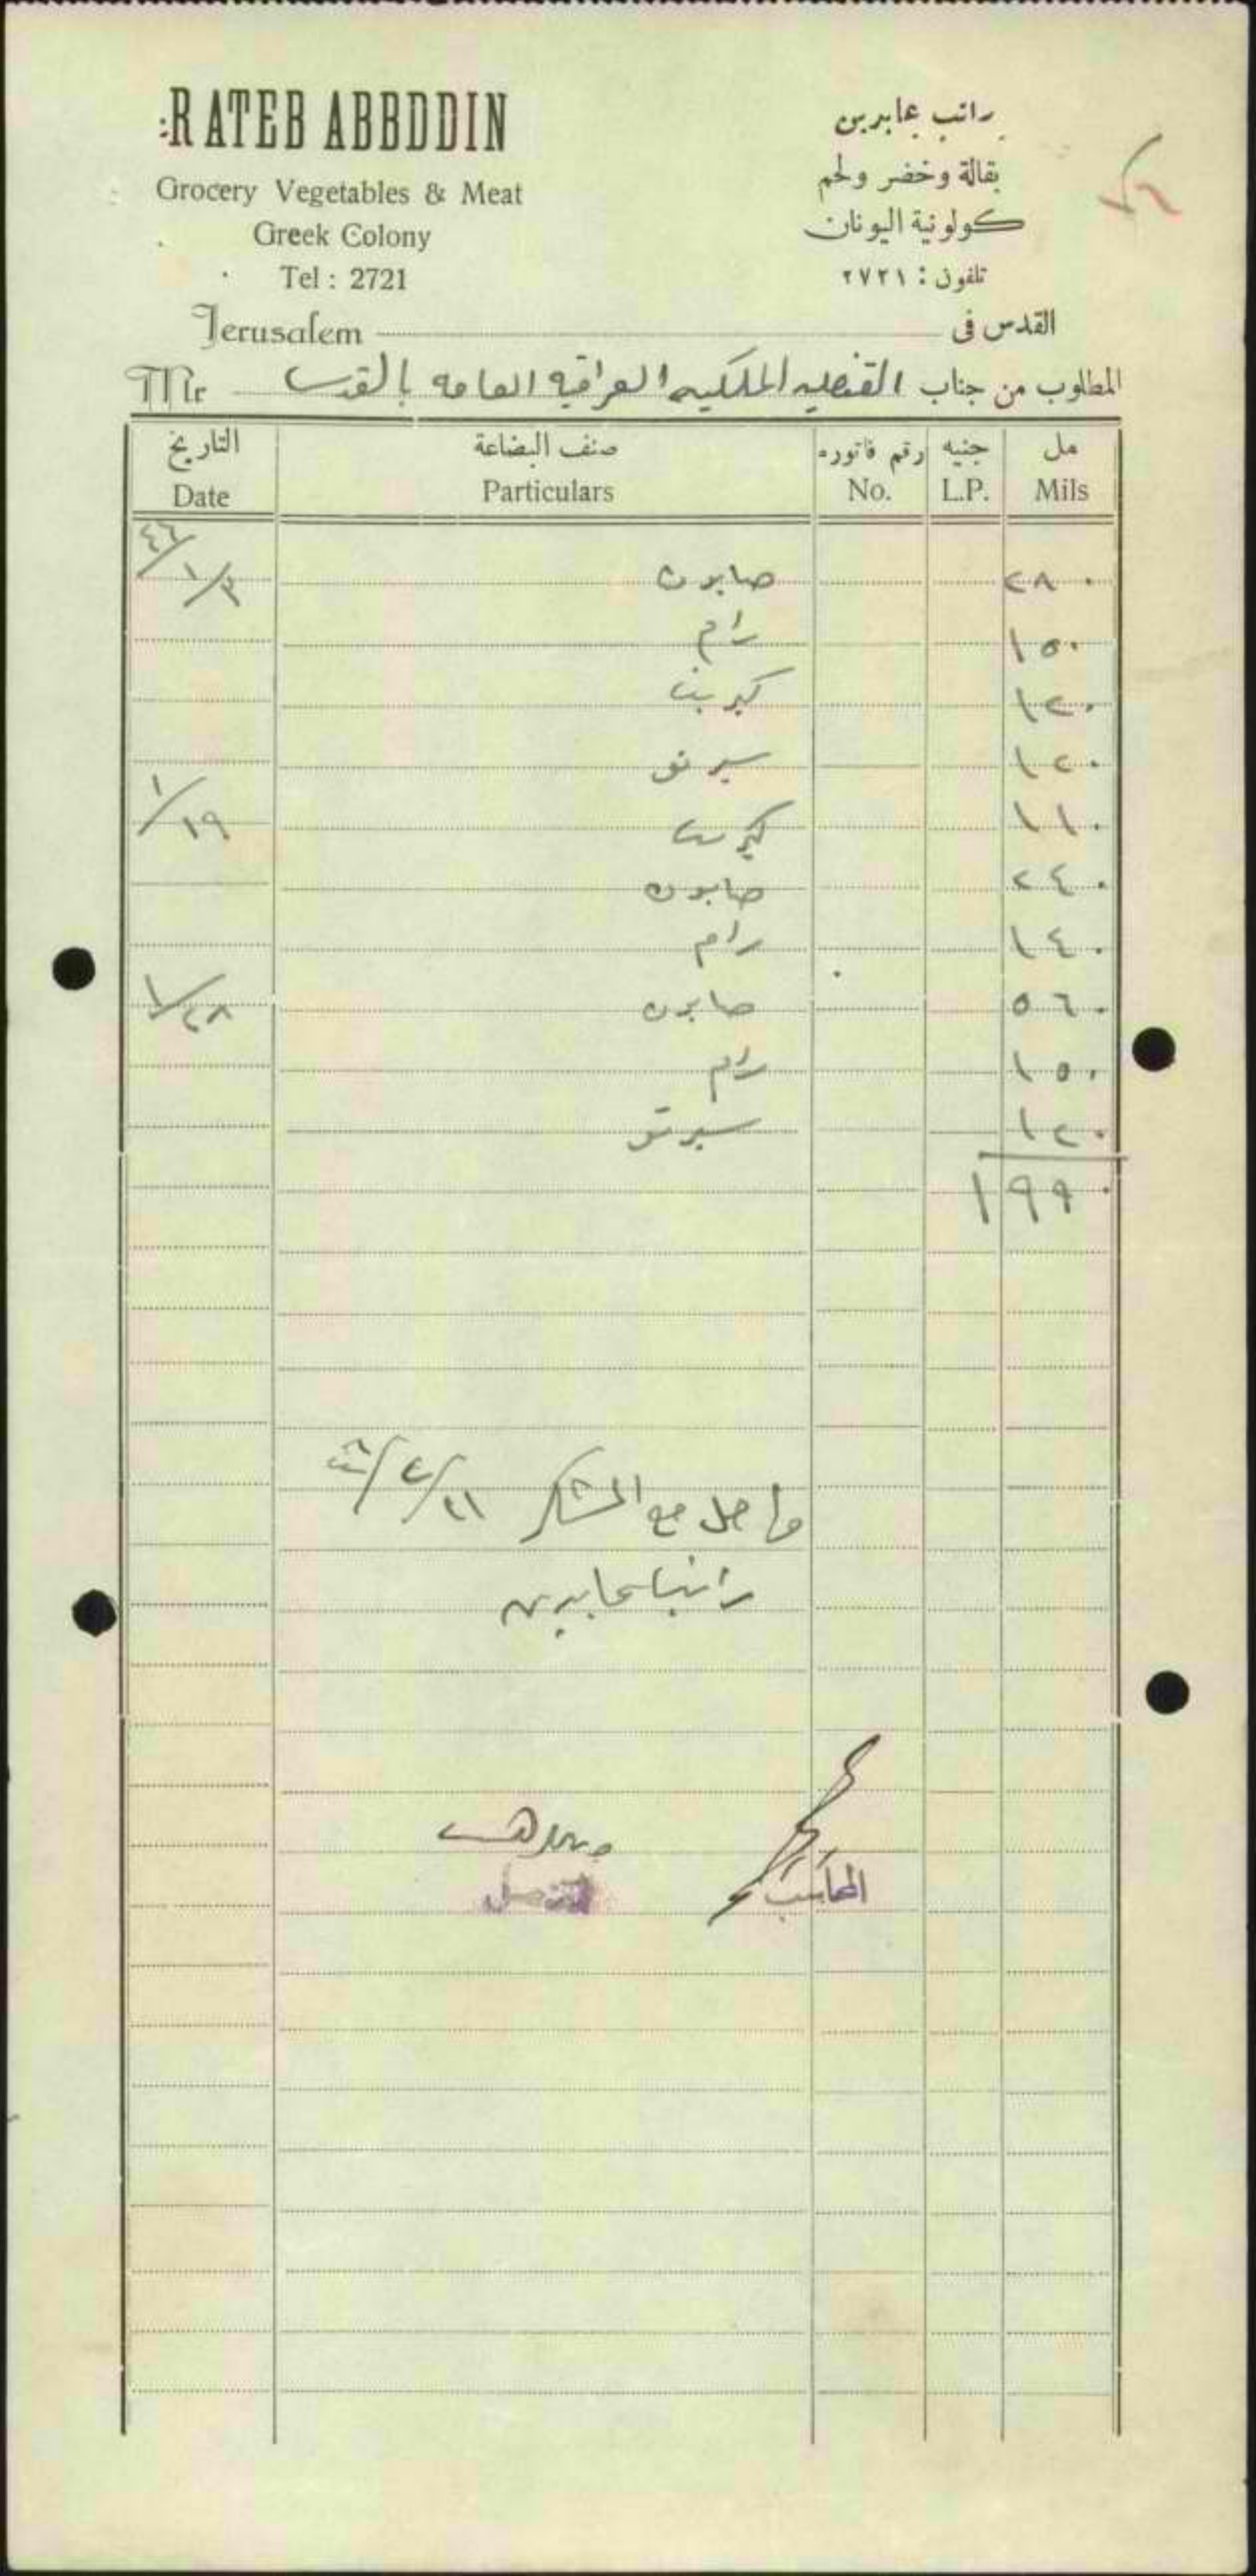 RATEB ABBDDIN
Grocery Vegetables & Meat
Greek Colony
Tel : 2721
راتب عابدين
بقالة وخضر ولحم
كولونية اليونان
تلفون : ٢٧٢١
Jerusalem القدس في
المطلوب من جناب القنصليه الملكيه العراقيه العامه بالقدس Mr
التاريخ صنف البضاعة رقم فاتوره جنيه مل
Date Particulars No. L.P. Mils
٤٦/١/٣ صابون ٢٨٠
رام ١٥٠
كبريت ١٢٠
سبرتو ١٢٠
١/١٩ كبريت ١١٠
صابون ٢٤٠
رام ١٤٠
١/٢٨ صابون ٥٦٠
رام ١٥٠
سبرتو ١٢٠
١ ٩٩٠
واصل مع الشكر
راتب عابدين
المحاسب
القنصل